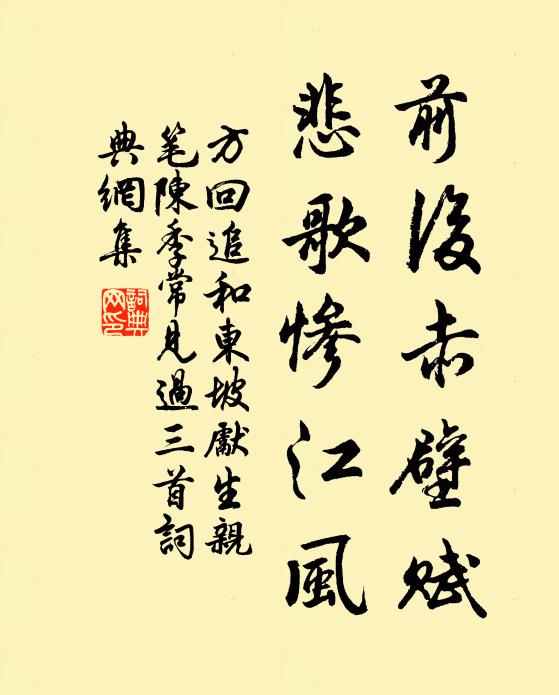 前後赤壁赋
悲歌惨江風
方回追和東坡獻生親
笔陳季常見過三首詞
典網集
詞典網印